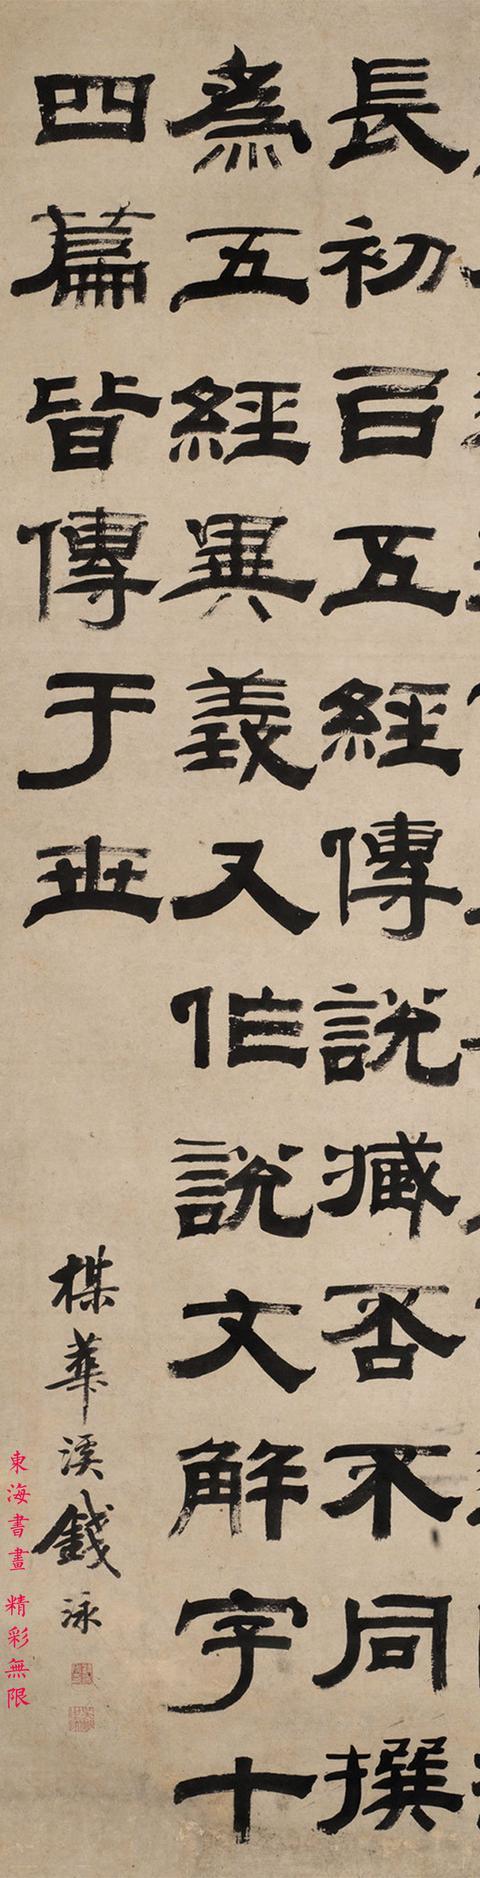 長初㠯五經傳說臧否不同撰
為五經異義又作說文解字十
四篇皆傳于世
楳華溪錢泳
東海書畫 精彩無限